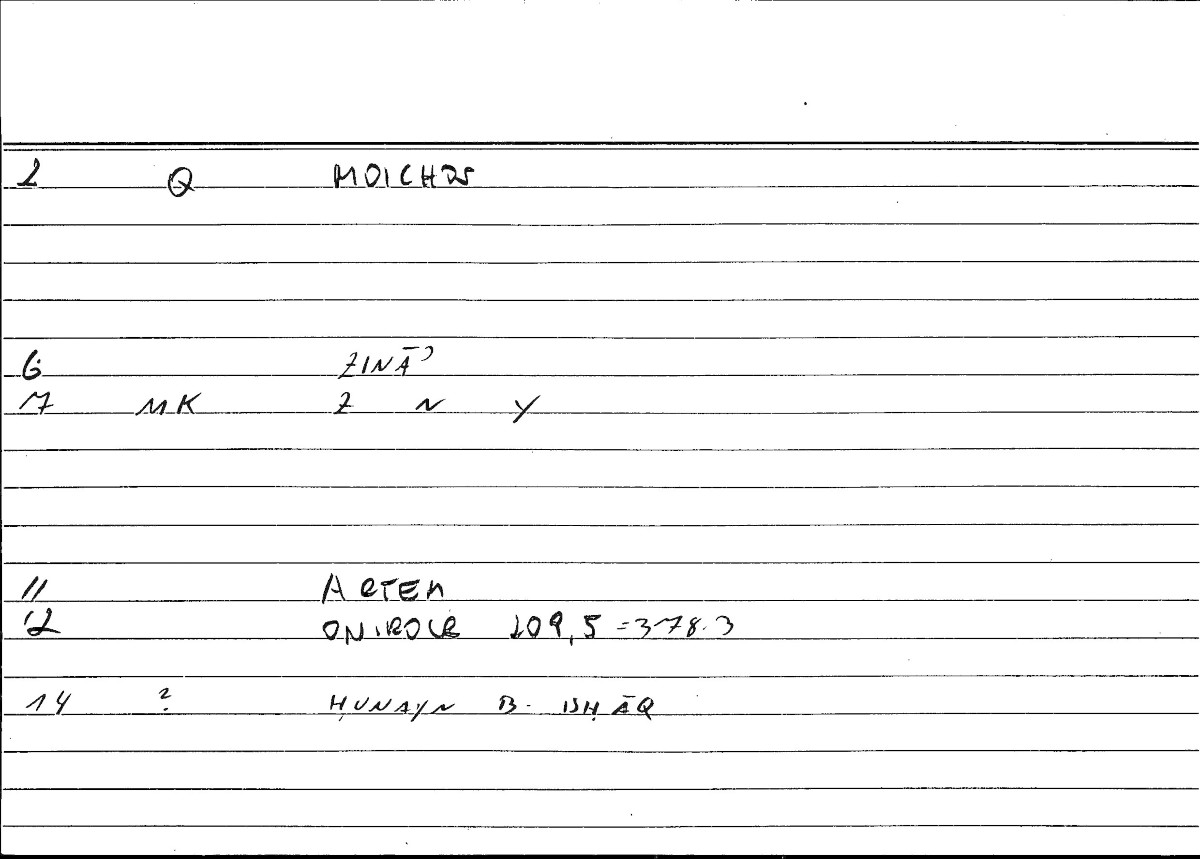 2 Q MOICHOS
6 ZINĀʾ
7 MK Z N Y
11 ARTEM
12 ONIROCR 209,5 = 378.3
14 ? ḤUNAYN B. ISḤĀQ